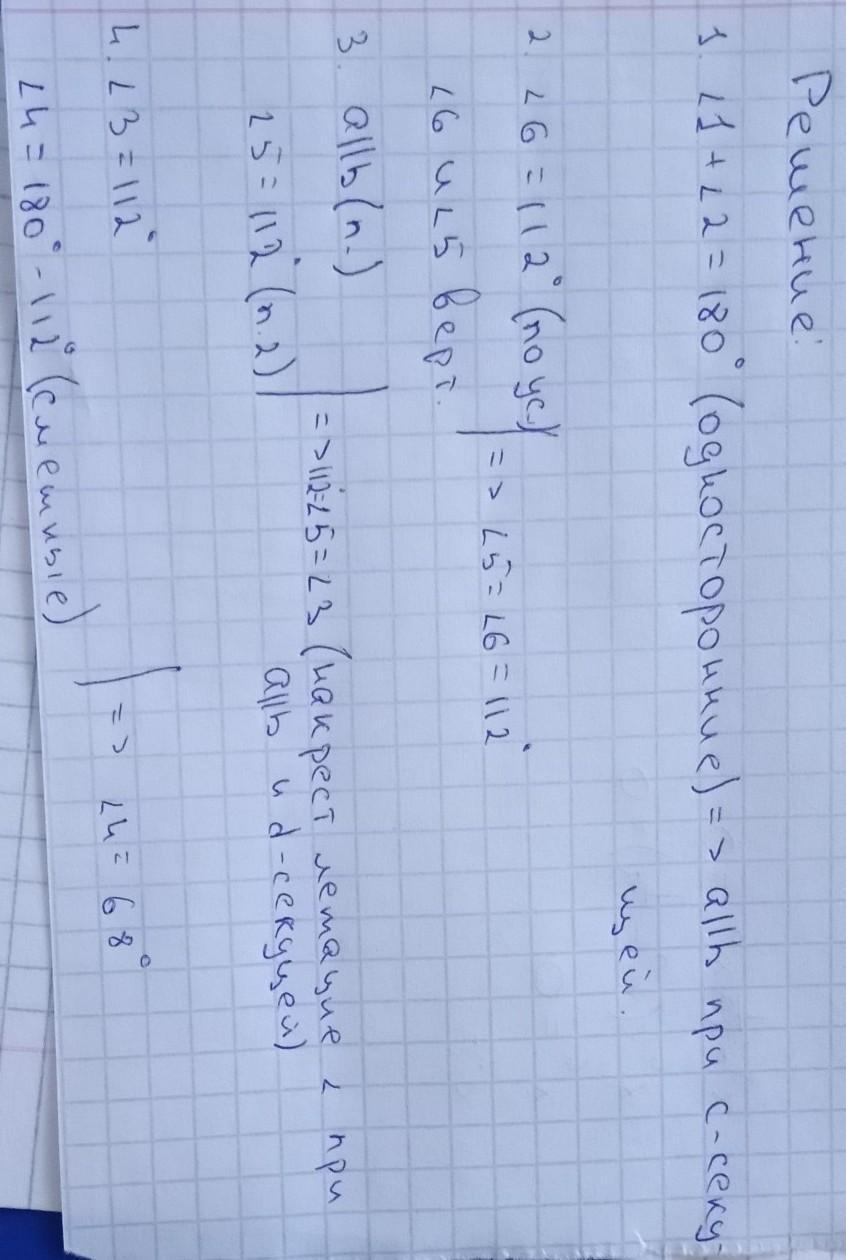 Решение:
1. ∠1+∠2=180° (односторонние)=> a||b при c-секу-
щей.
2. ∠6=112° (по ус.)
∠6 и ∠5 верт. | => ∠5=∠6=112°
3. a||b (п.)
∠5=112° (п.2) | =>112°=∠5=∠3 (накрест лежащие ∠ при
a||b и d-секущей)
4. ∠3=112°
∠4=180°-112° (смежные) | => ∠4=68°